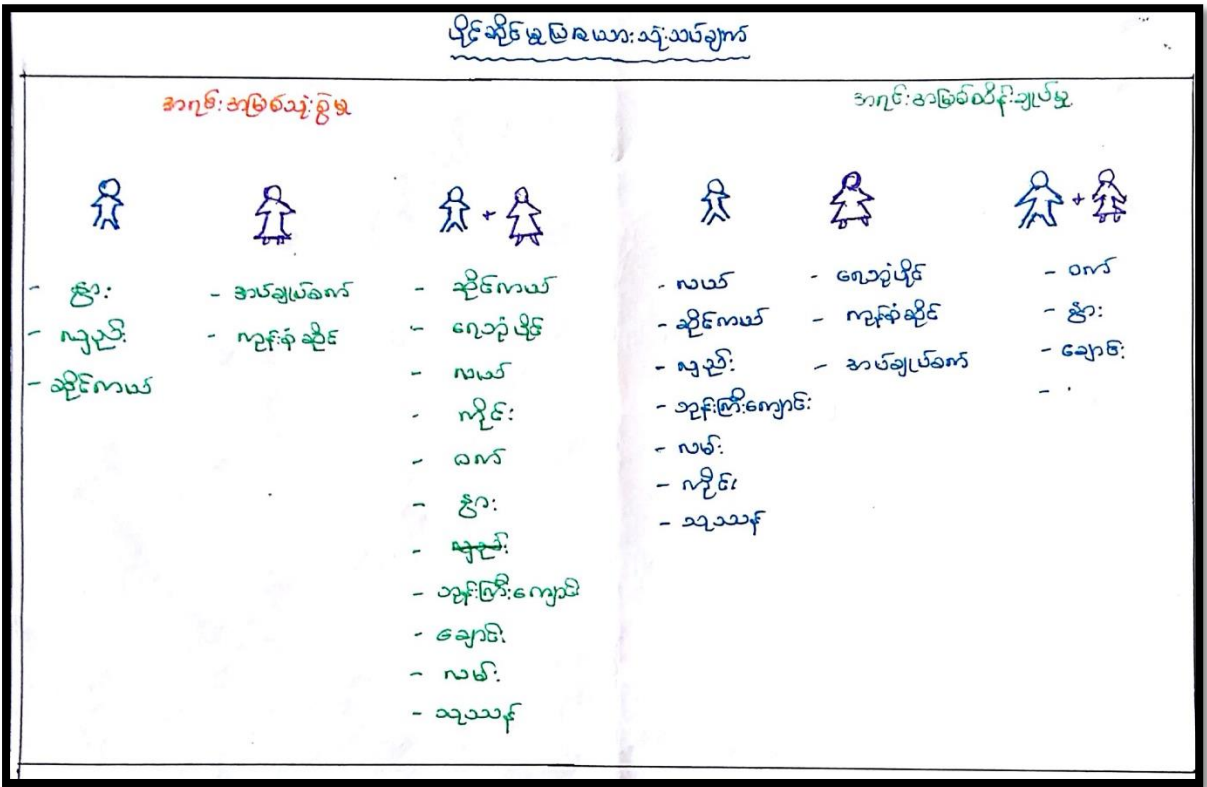 ပိုင်ဆိုင်မှုပြဇယားသုံးသပ်ချက်
အရင်းအမြစ်သုံးစွဲမှု
- နွား
- လှည်း
- ဆိုင်ကယ်
- အပ်ချုပ်စက်
- ကုန်စုံဆိုင်
+
- ဆိုင်ကယ်
- ရေဘုံပိုင်
- လယ်
- ကိုင်း
- ဝက်
- နွား
- လှည်း
- ဘုန်းကြီးကျောင်း
- ချောင်း
- လမ်း
- သုဿန်
အရင်းအမြစ်ထိန်းချုပ်မှု
- လယ်
- ဆိုင်ကယ်
- လှည်း
- ဘုန်းကြီးကျောင်း
- လမ်း
- ကိုင်း
- သုဿန်
- ရေဘုံပိုင်
- ကုန်စုံဆိုင်
- အပ်ချုပ်စက်
+
- ဝက်
- နွား
- ချောင်း
-